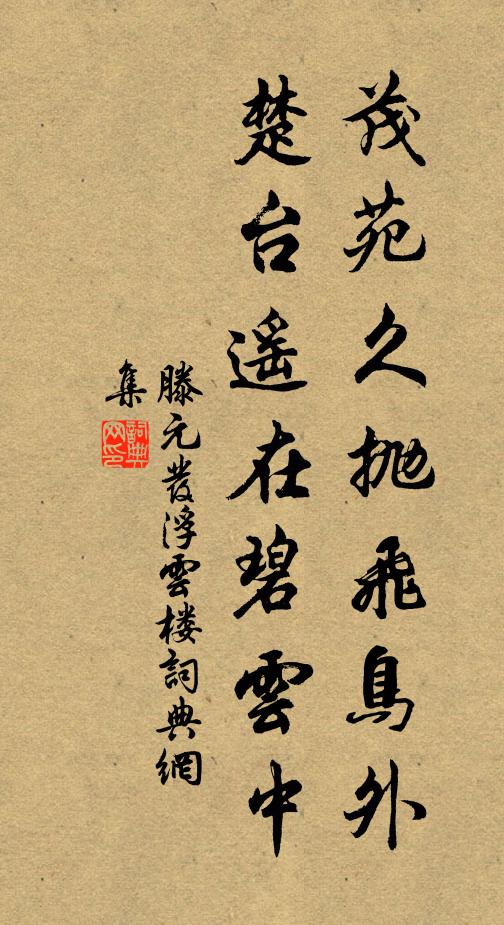 茂苑久抛飛鳥外
楚台遥在碧雲中
滕元發浮雲楼詞典網
集
詞典網印